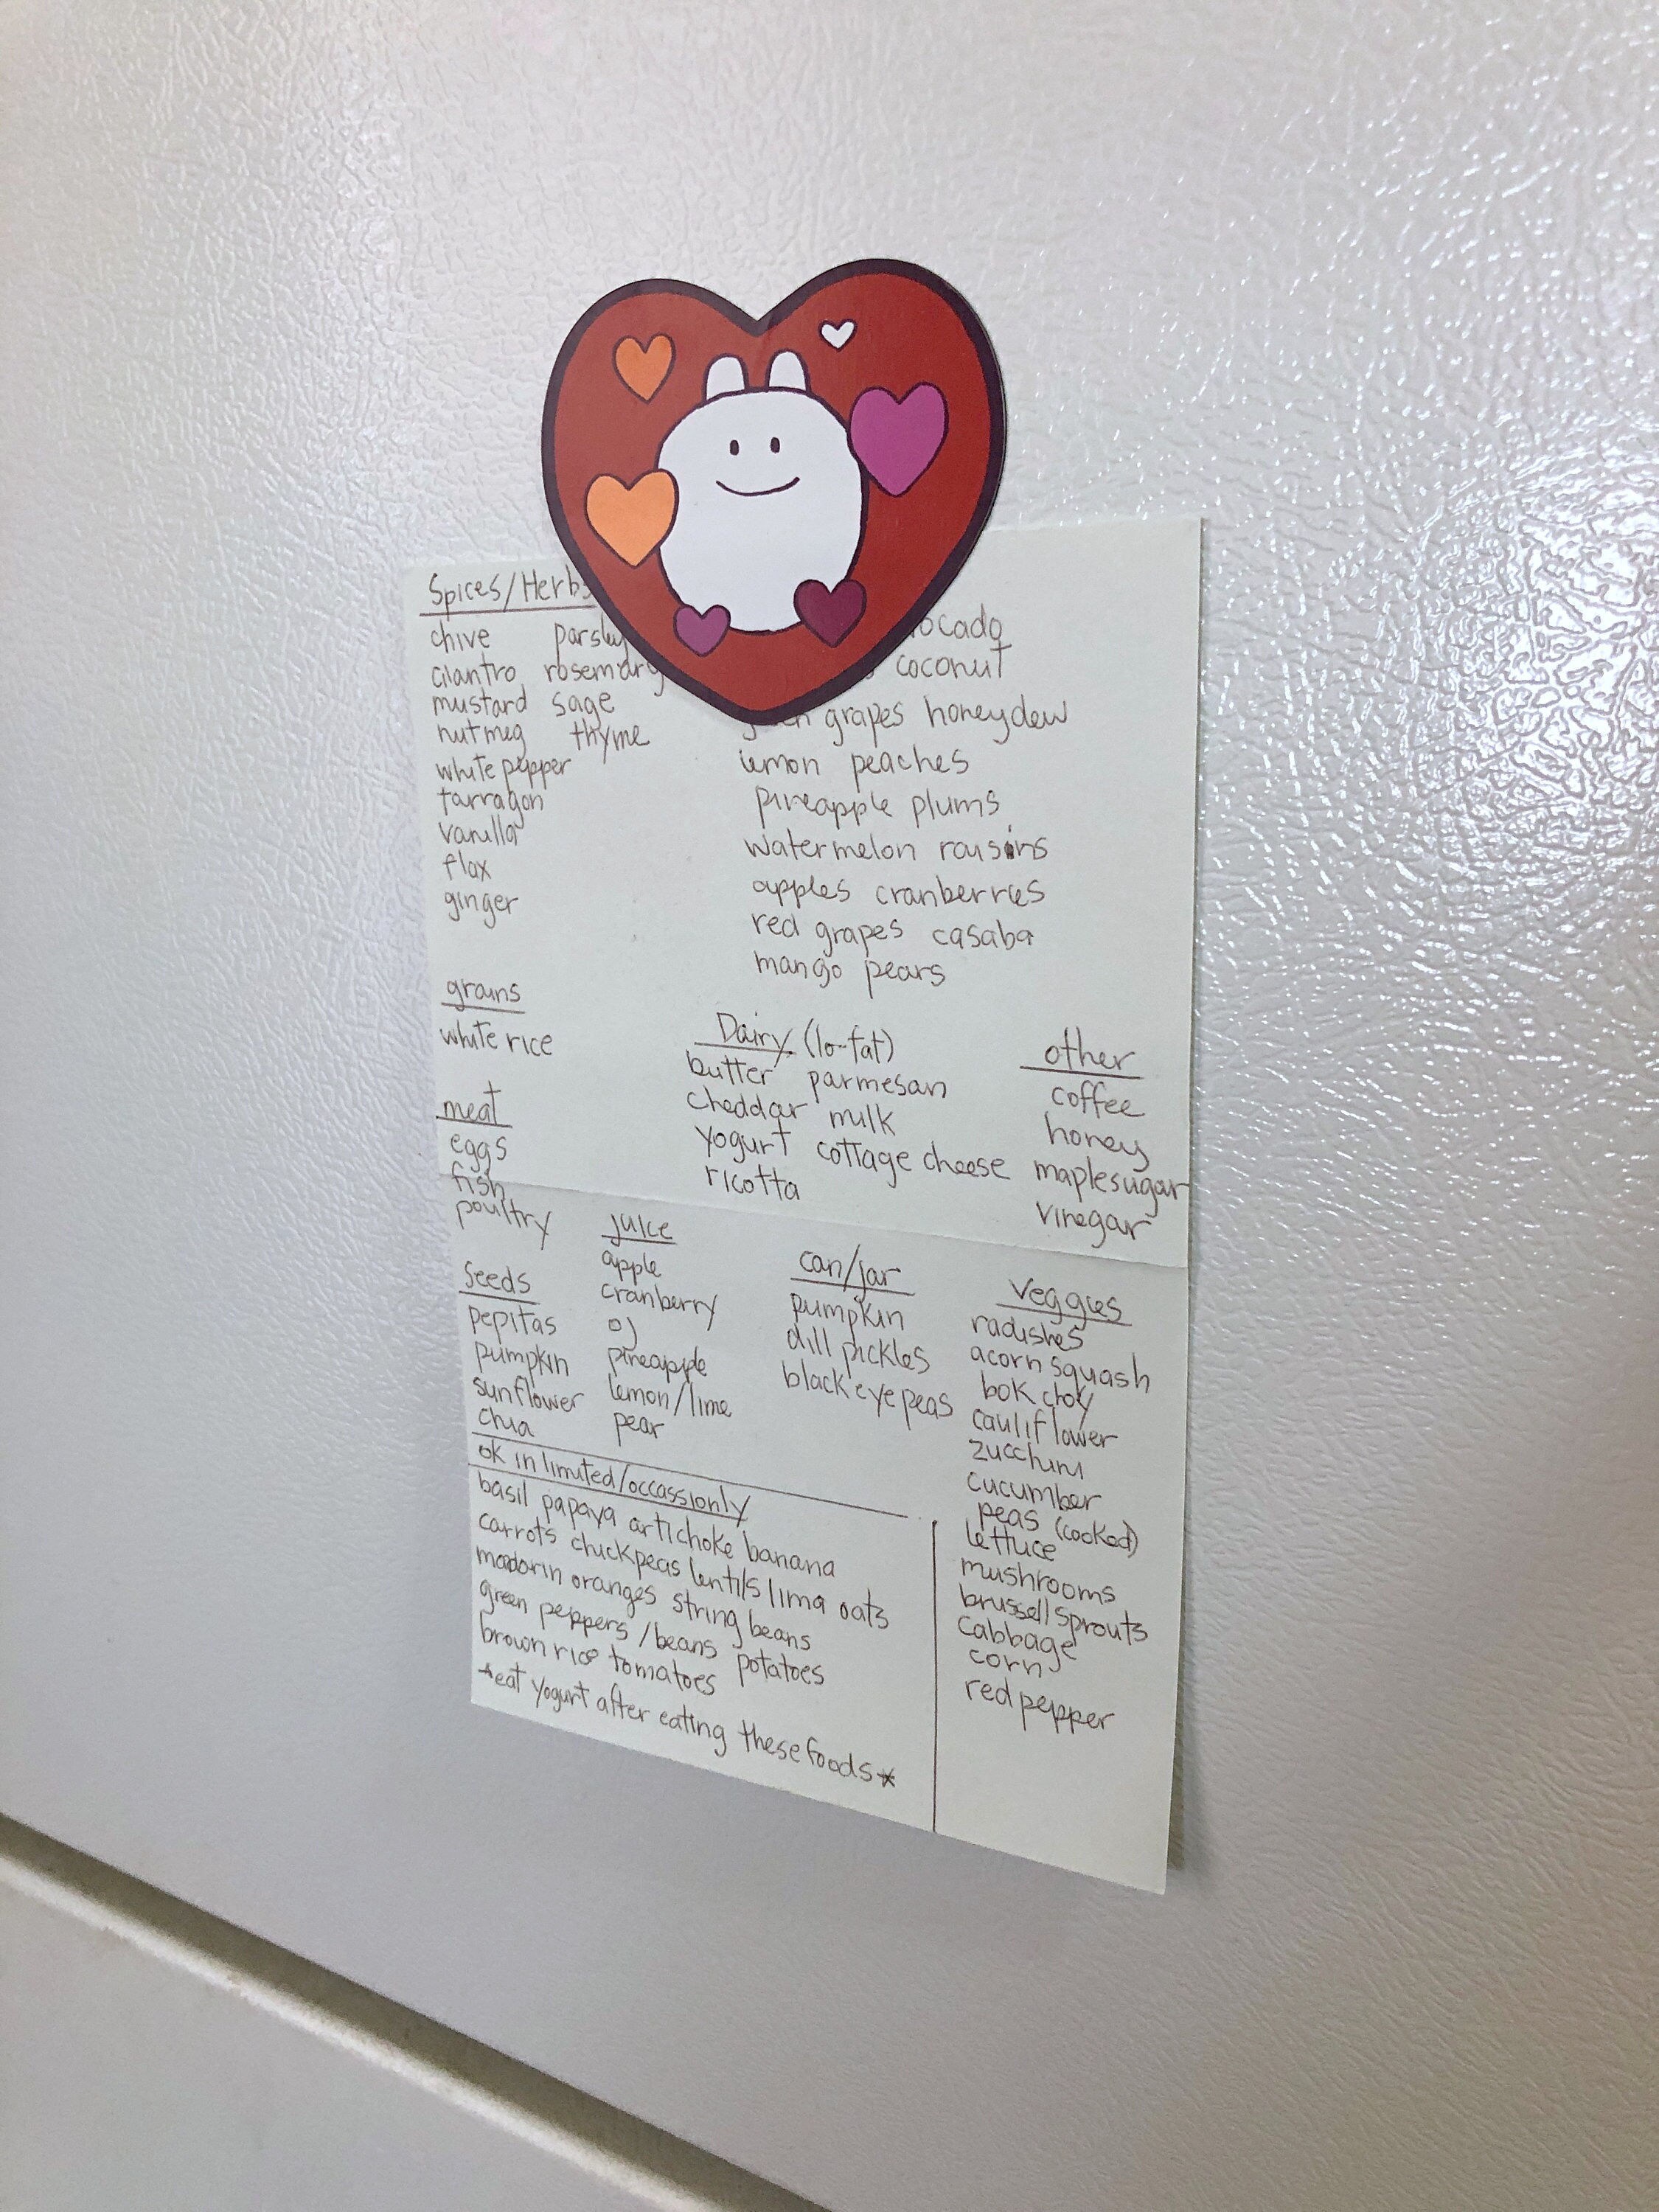 Spices/Herbs
chive parsley
cilantro rosemary
mustard sage
nutmeg thyme
white pepper
tarragon
vanilla
flax
ginger
coconut
grapes honeydew
lemon peaches
pineapple plums
watermelon raisins
apples cranberries
red grapes casaba
mango pears
grains
white rice
meat
eggs
fish
poultry
Dairy (lo-fat)
butter parmesan
cheddar milk
yogurt cottage cheese
ricotta
other
coffee
honey
maple sugar
vinegar
Seeds
pepitas
pumpkin
sunflower
chia
juice
apple
cranberry
oj
pineapple
lemon/lime
pear
can/jar
pumpkin
dill pickles
black eye peas
Veggies
radishes
acorn squash
bok choy
cauliflower
zucchini
cucumber
peas (cooked)
lettuce
mushrooms
brussell sprouts
cabbage
corn
red pepper
ok in limited/occassionly
basil papaya artichoke banana
carrots chickpeas lentils lima oats
oranges string beans
green peppers/beans potatoes
brown rice tomatoes
*eat yogurt after eating these foods*